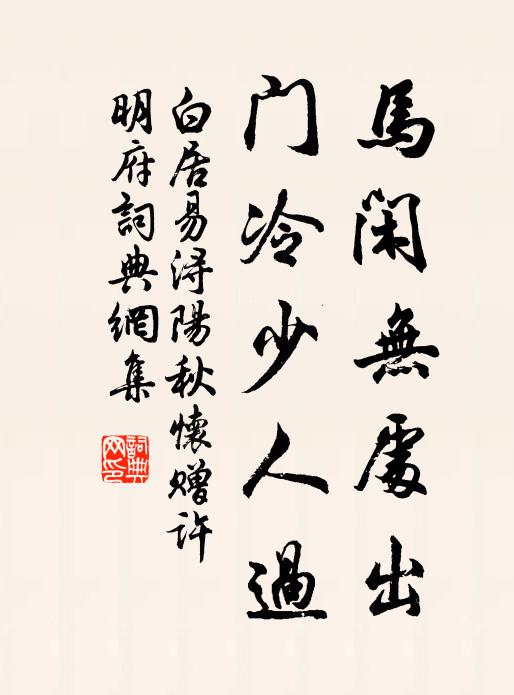 馬閑無處出
门冷少人過
白居易潯陽秋懷贈许
明府詞典網集
詞典
网印